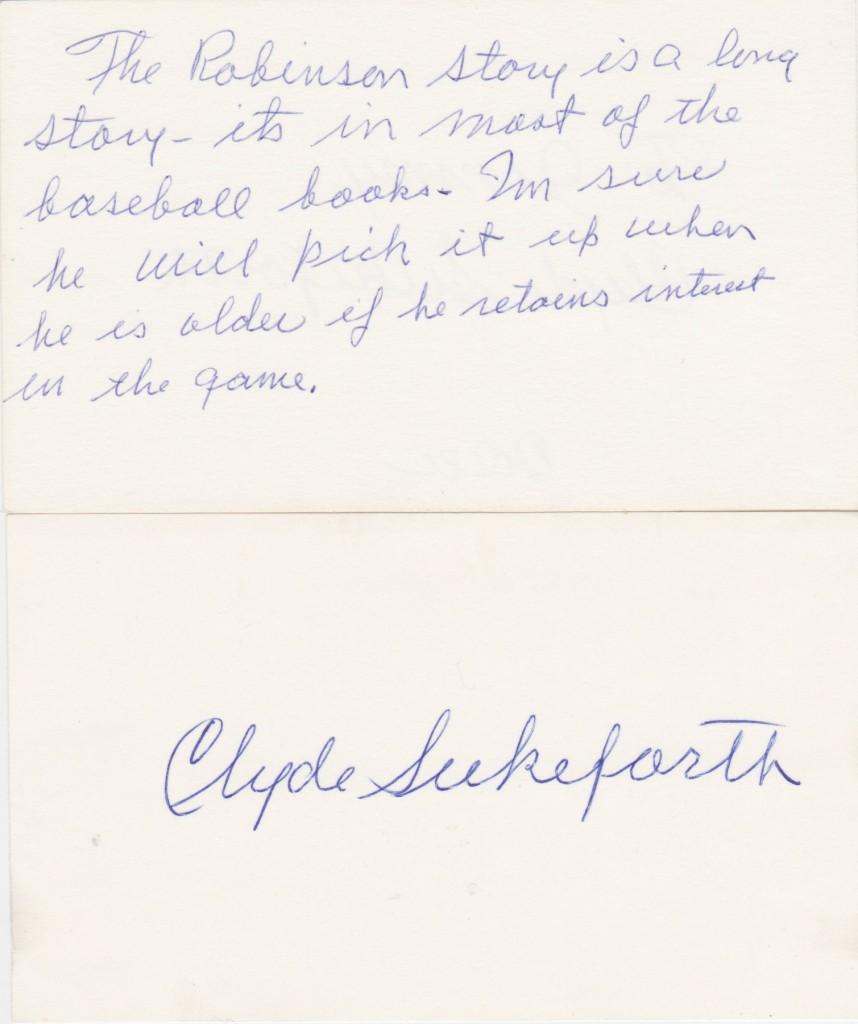 The Robinson story is a long
story - its in most of the
baseball books - I'm sure
he will pick it up when
he is older if he retains interest
in the game.
Clyde Sukeforth